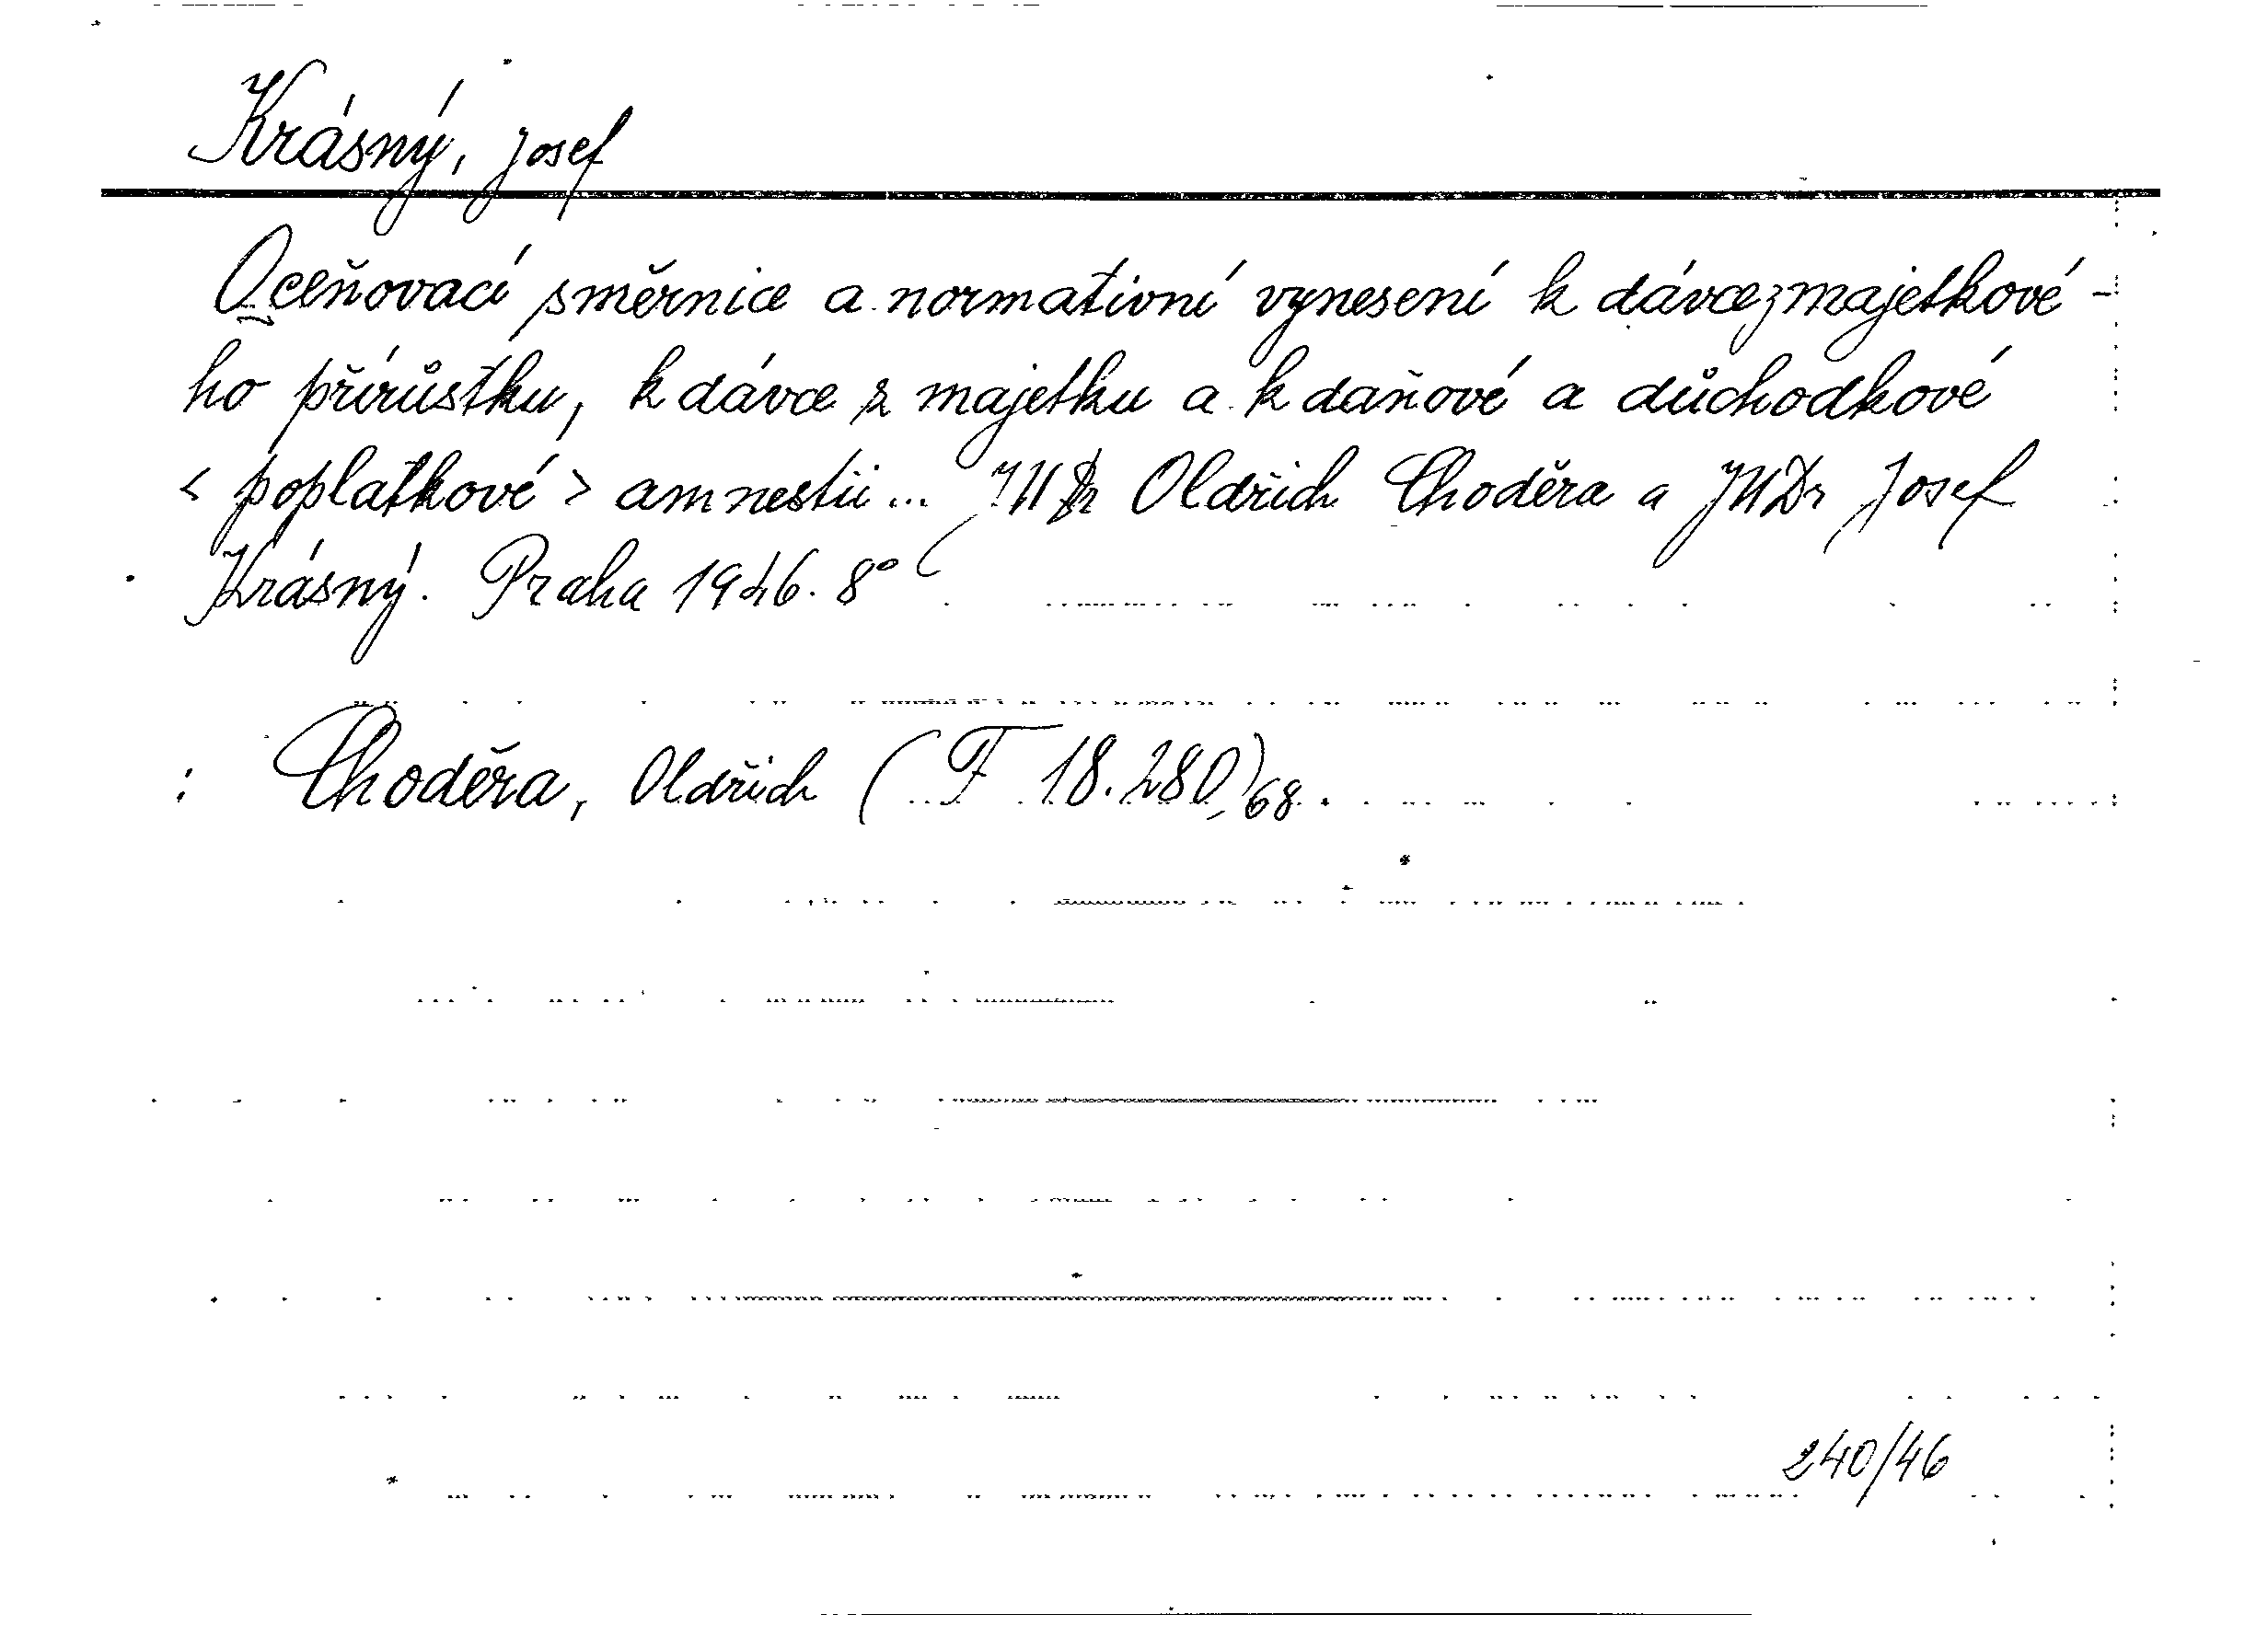 Krásný, Josef
Oceňovací směrnice a normativní vynesení k dávce z majetkové-
ho přírůstku, k dávce z majetku a k daňové a důchodkové
< poplatkové > amnestii... JUDr Oldřich Choděra a JUDr Josef
Krásný. Praha 1946. 8°
: Choděra, Oldřich (F 18.280)68.
240/46